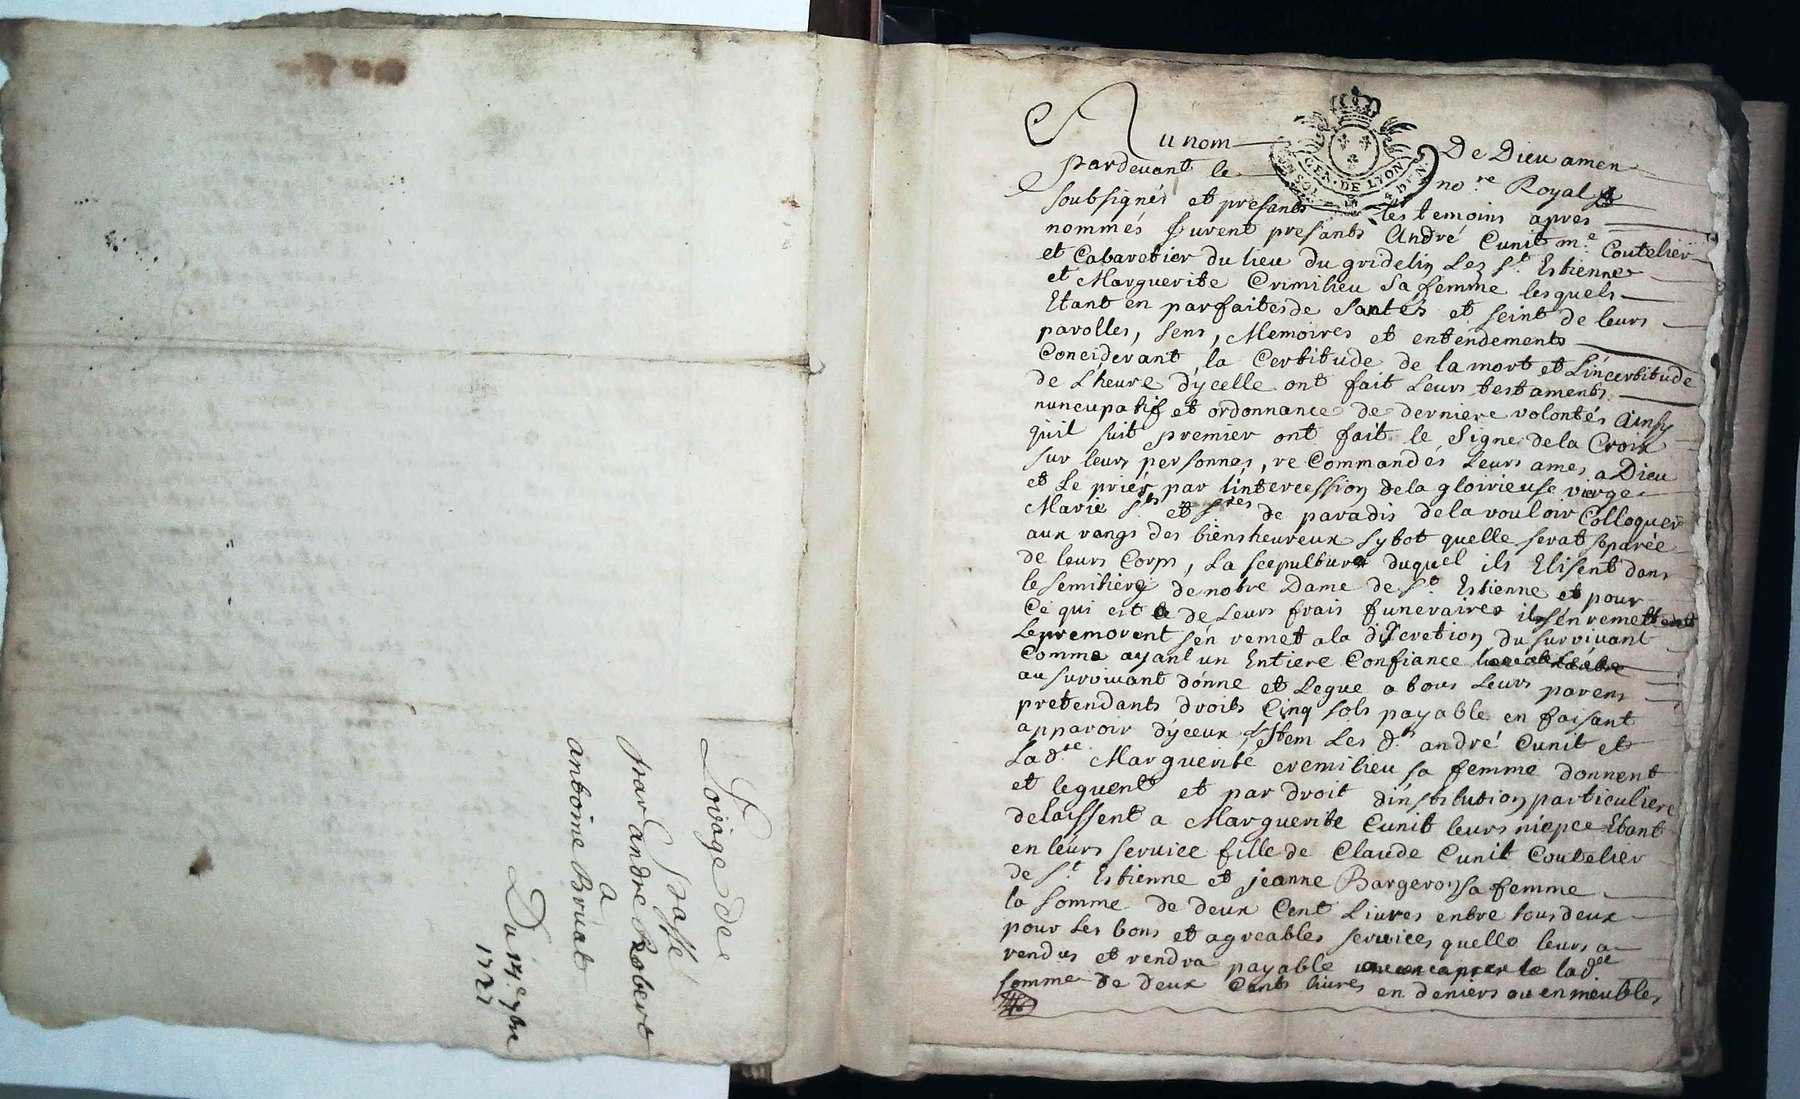 Louage de
passé
par andre Robert
a
anthoine Bruat
Du 14.e 7bre
1721
Au nom De Dieu amen
GEN. DE LYON
pardevant le no.re Royal
soubsignés et presants les temoins apres
nommés furent presants André Cunit m.e Coutelier
et Cabaretier du lieu du gridelin Les S.t Estienne
et Marguerite Crimilieu sa femme lesquels
Etant en parfaites de santés et seint de leurs
parolles, sens, Memoires et entendements
Conciderant la Certitude de la mort et L'incertitude
de L'heure d'ycelle ont fait Leurs testaments
nuncupatif et ordonnance de derniere volontés Ainsy
quil suit premier ont fait le Signe de la Croix
sur leurs personnes, re Commandés Leurs ames a Dieu
et Le priér par lintercession de la glorrieuse vierge
Marie S.ts et S.tes de paradis de la vouloir Colloquer
aux rangs des biensheureux sytot quelle serat separée
de leurs Corps, La scepulture duquel ils Elisent dans
le semitiere de notre Dame de S.t Estienne et pour
Ce qui est de Leurs frais funeraires il s'en remettent
Le premorent s'en remet a la discretion du survivant
Comme ayant un Entiere Confiance
au survivant donne et Legue a tous Leurs parens
pretendants droits Cinq sols payable en faisant
apparoir d'yceux Item Les d.ts andré Cunit et
La d.te Marguerite cremilieu sa femme donnent
et leguent et par droit d'institution particuliere
delaissent a Marguerite Cunit leurs niepce Etant
en leurs service fille de Claude Cunit Coutelier
de S.t Estienne et jeanne Bargeron sa femme
la somme de deux Cent Livres entre tous deux
pour Les bons et agreables services quelle leurs a
rendus et rendra payable la d.te
somme de deux Cents livres en deniers ou en meubles